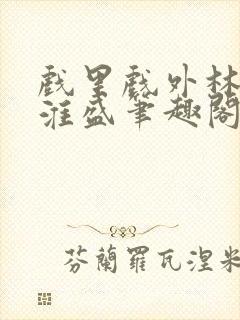 戲里戲外林
淮盛筆趣閣
芬蘭羅瓦涅米